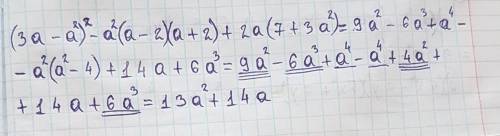 (3a - a²)² - a²(a - 2)(a + 2) + 2a(7 + 3a²) = 9a² - 6a³ + a⁴ -
- a²(a² - 4) + 14a + 6a³ = 9a² - 6a³ + a⁴ - a⁴ + 4a² +
+ 14a + 6a³ = 13a² + 14a